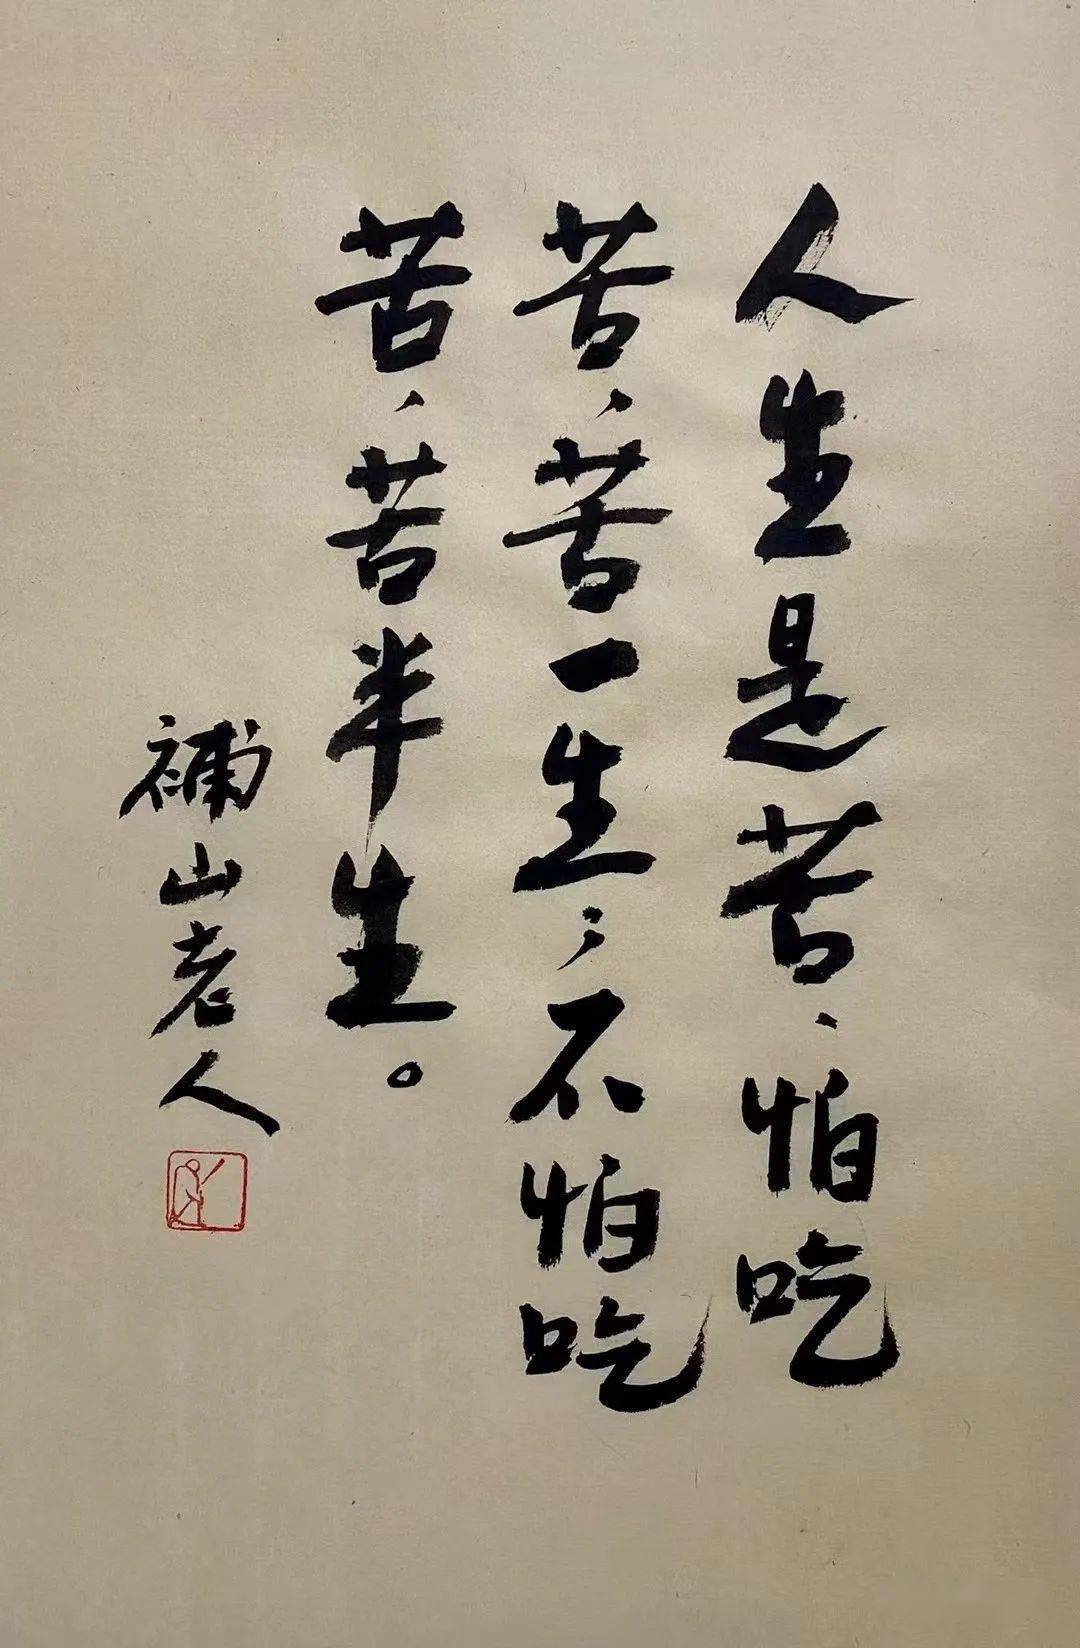 人生是苦、怕吃
苦、苦一生；不怕吃
苦、苦半生。
補山老人